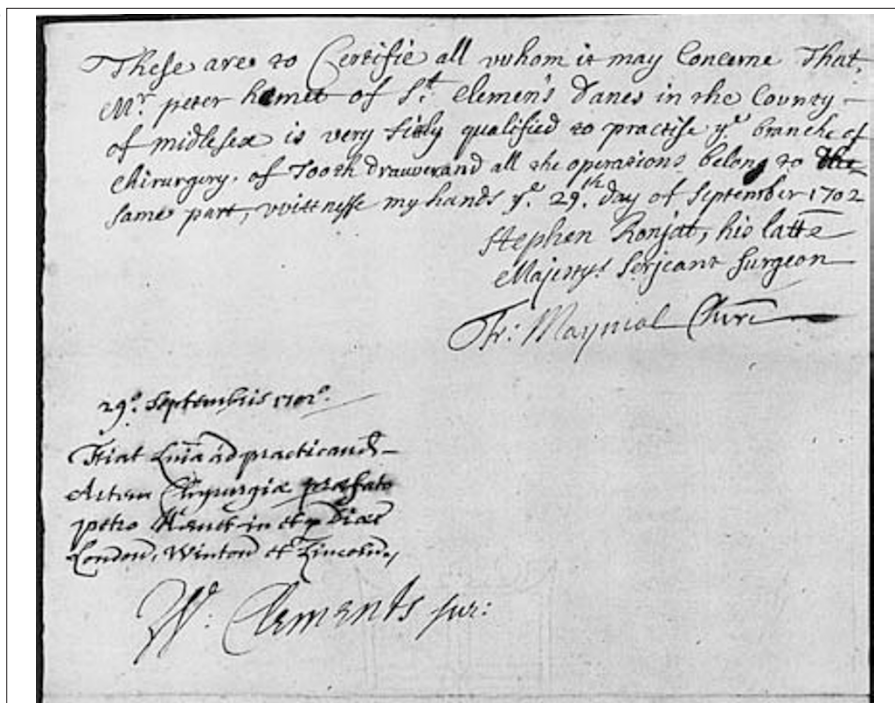 These are to Certifie all whom it may Concerne That,
Mr. peter hemet of St. Clemen's Danes in the County
of midlesex is very fitly qualified to practise ye. branche of
Chirurgery. of Tooth drawer and all the operations belong to the
same part, wittnesse my hands ye. 29th. day of September 1702
Stephen Ronjat, his latte
Majestys Serjeant Surgeon
Fr: Maynial Chir
29o. Septembris 1702o.
Fiat ad practicand
Artem Chyrurgiæ præfato
petro Hemet in et p Dioc
London, Winton et Lincoln,
W: Clements sur: